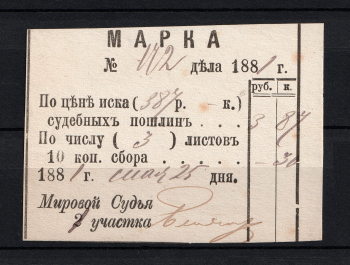 МАРКА
№ 112 дѣла 1881 г.
руб. к.
По цѣнѣ иска (387 р. - к.)
судебныхъ пошлинъ . . 3 87
По числу ( 3 ) листовъ
10 коп. сбора . . . . . - 30
1881 г. мая 25 дня.
Мировой Судья
2 участка